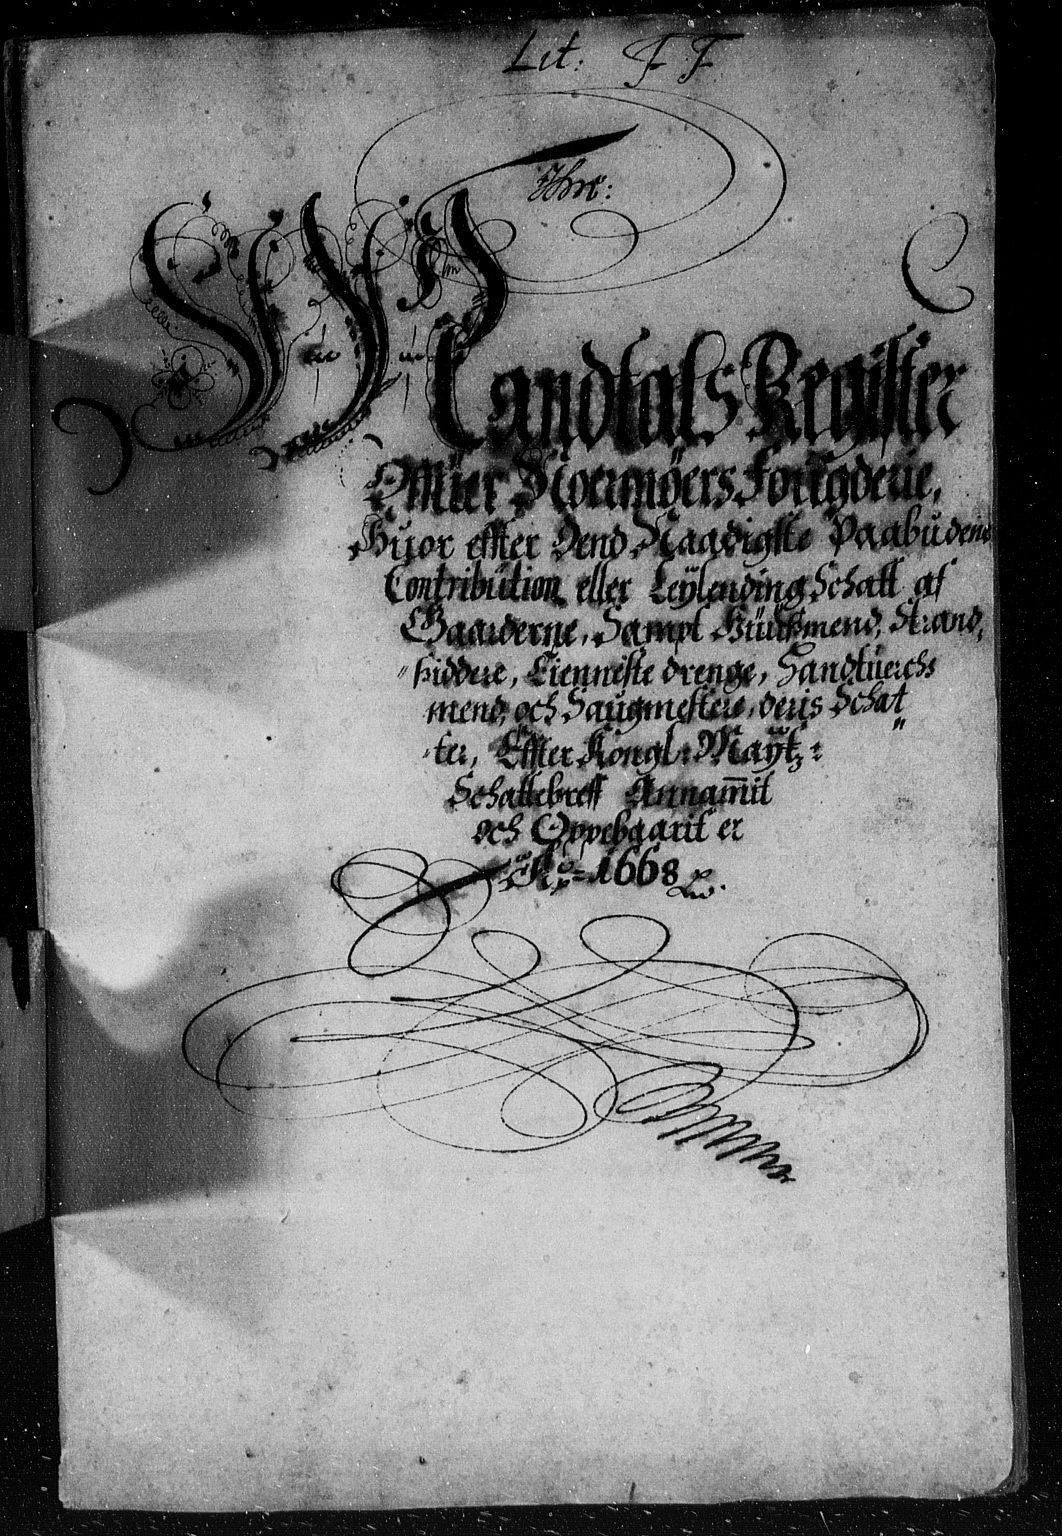 Lit: FF
Mandtals Register
Offuer Noermøers Fougderie,
Huor effter Dend Naadigste Paabudene
Contribution eller Leÿlending Schatt af
Gaarderne, Sampt Huußmend, Strand,
siddere, Tienneste drenge, Handtuerchs
mend, och Saugmestere, deris Schat
ter, Effter Kongl: Maÿtz:
Schattebreff Annammit
och Oppebaarit er
Ao = 1668